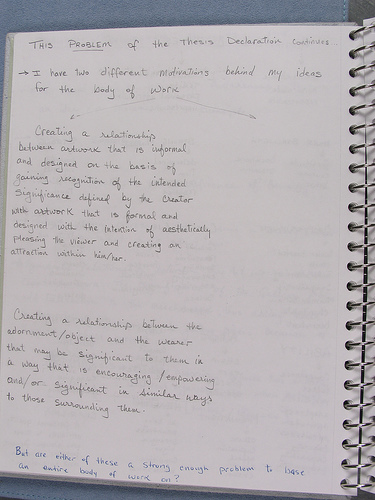 THIS PROBLEM of the THESIS Declaration continues...
→ I have two different motivations behind my ideas
for the body of work
Creating a relationship
between artwork that is informal
and designed on the basis of
gaining recognition of the intended
significance defined by the creator
with artwork that is formal and
designed with the intention of aesthetically
pleasing the viewer and creating an
attraction within him/her.
Creating a relationship between the
adornment/object and the wearer
that may be significant to them in
a way that is encouraging/empowering
and/or significant in similar ways
to those surrounding them.
But are either of these a strong enough problem to base
an entire body of work on?